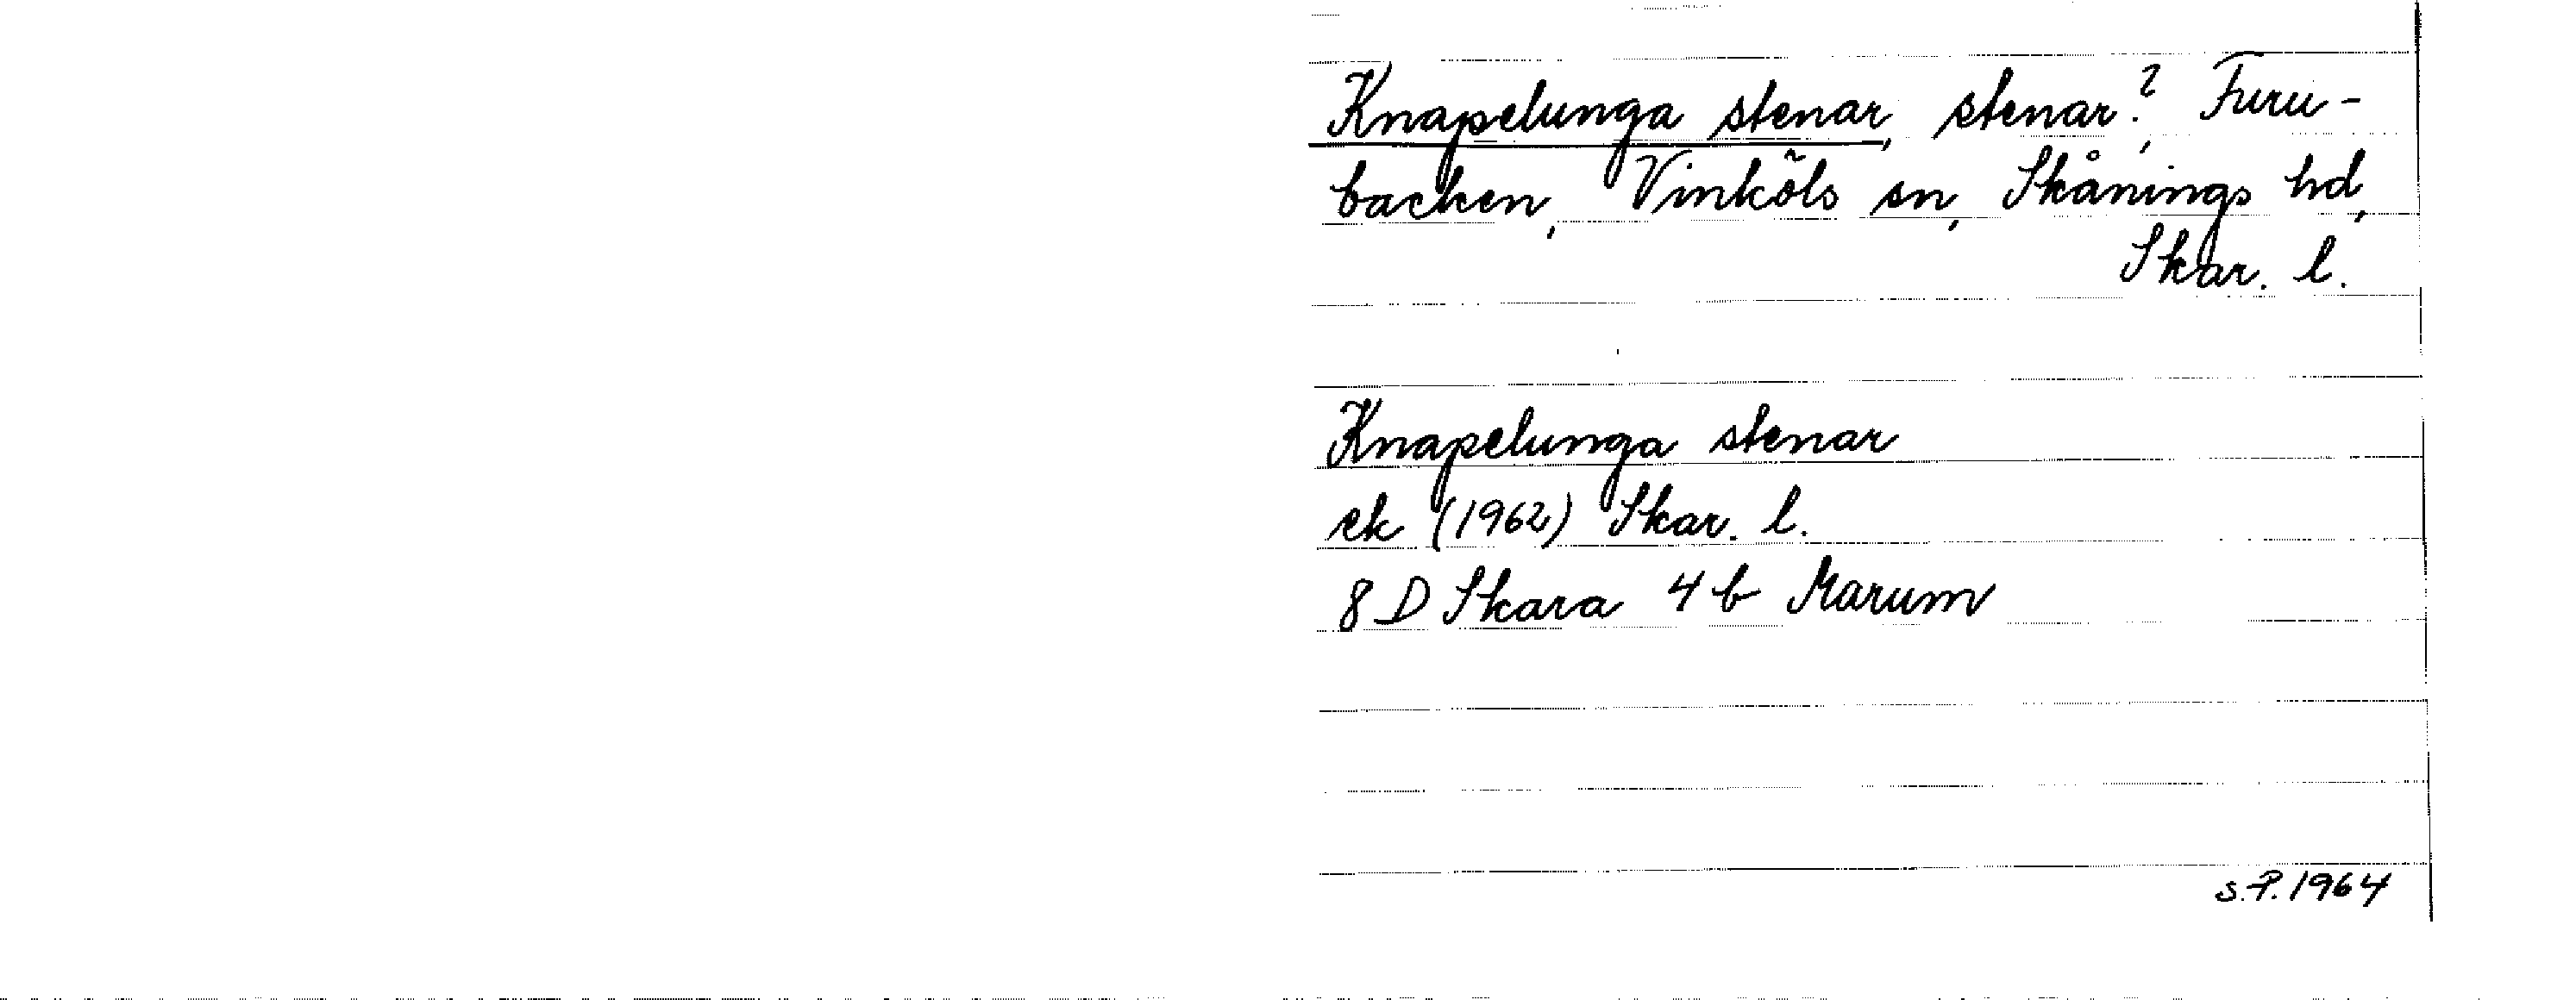 Knapelunga stenar, stenar?, Furu-
backen, Vinköls sn, Skånings hd,
Skar. l.
Knapelunga stenar
ek (1962) Skar. l.
8 D Skara 4 b Marum
S.P. 1964